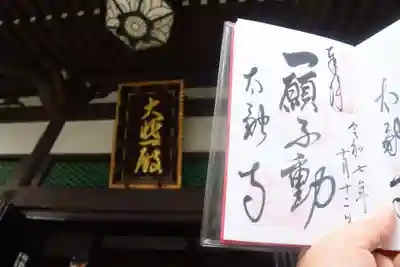 大悲殿
奉拝
一願不動
太融寺
令和七年
十月十二日
太融